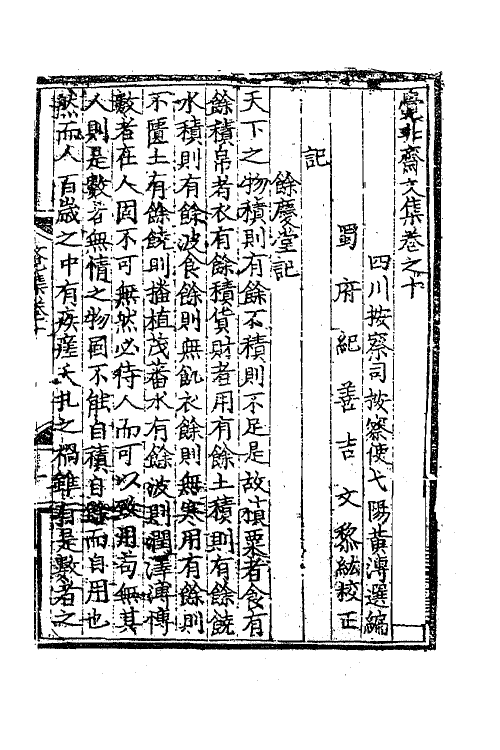 覺非齋文集卷之十
四川按察司按察使弋陽黃溥選編
蜀府紀善吉文黎紘校正
記
餘慶堂記
天下之物積則有餘不積則不足是故積粟者食有
餘積帛者衣有餘積貨財者用有餘土積則有餘饒
水積則有餘波食餘則無飢衣餘則無寒用有餘則
不匱土有餘饒則播植茂蕃水有餘波則潤澤溥博
數者在人固不可無然必待人而可以致用苟無其
人則是數者無情之物固不能自積自餘而自用也
然而人百歲之中有疾瘥夭札之禍雖有是數者之
文集卷十